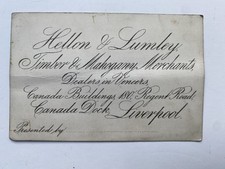 Hellon & Lumley,
Timber & Mahogany Merchants,
Dealers in Veneers,
Canada Buildings, 180, Regent Road,
Canada Dock, Liverpool.
Presented by